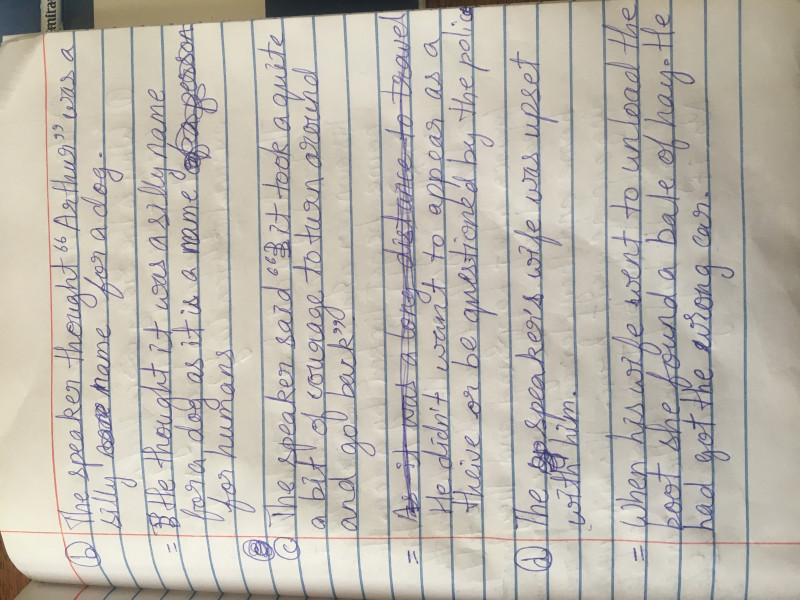 (b) The speaker thought "Arthur" was a
silly name for a dog.
= He thought it was a silly name
for a dog as it is a name
for humans
(c) The speaker said "it took a quite
a bit of courage to turn around
and go back"
= As it was a long distance to travel
He didn't want to appear as a
Theive or be questioned by the police
(d) The speaker's wife was upset
with him.
= When his wife went to unload the
poot she found a bale of hay. He
had got the wrong car.